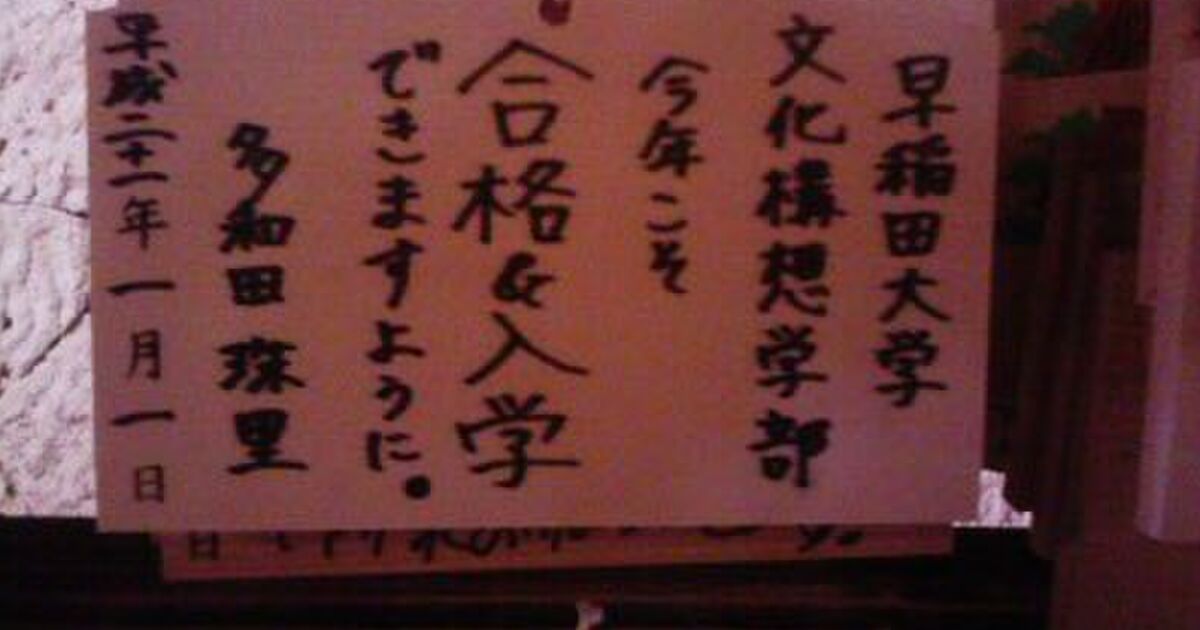 早稲田大学
文化構想学部
今年こそ
合格&入学
できますように。
多和田
平成二十一年一月一日